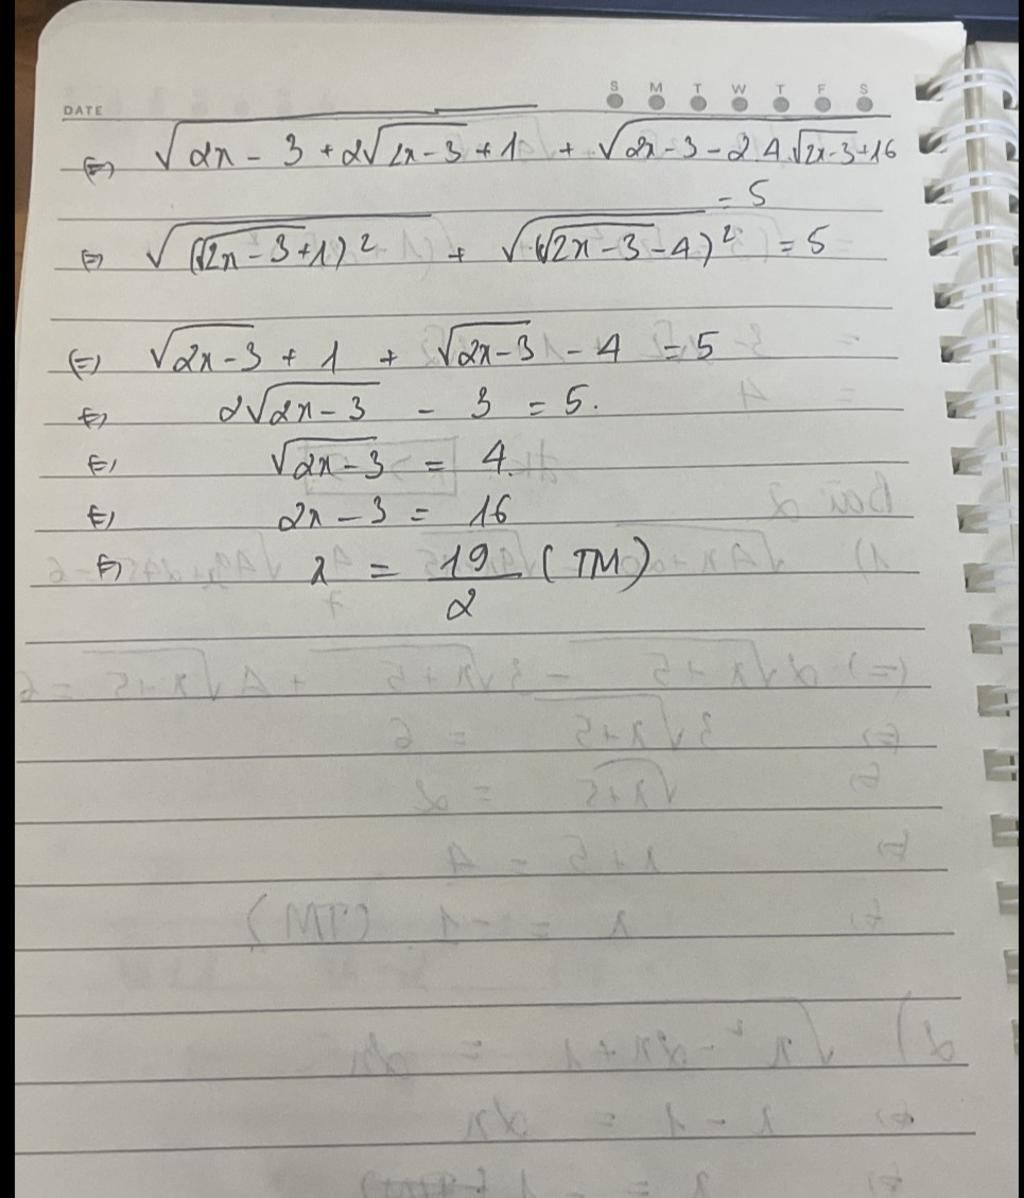 S M T W T F S
DATE
(=) √(2x - 3 + 2√(2x-3) + 1) + √(2x - 3 - 2.4.√(2x-3) + 16)
= 5
(=) √((√(2x-3)+1)²) + √((√(2x-3)-4)²) = 5
(=) √(2x-3) + 1 + √(2x-3) - 4 = 5
(=) 2√(2x-3) - 3 = 5.
(=) √(2x-3) = 4.
(=) 2x - 3 = 16
(=) x = 19/2 (TM)